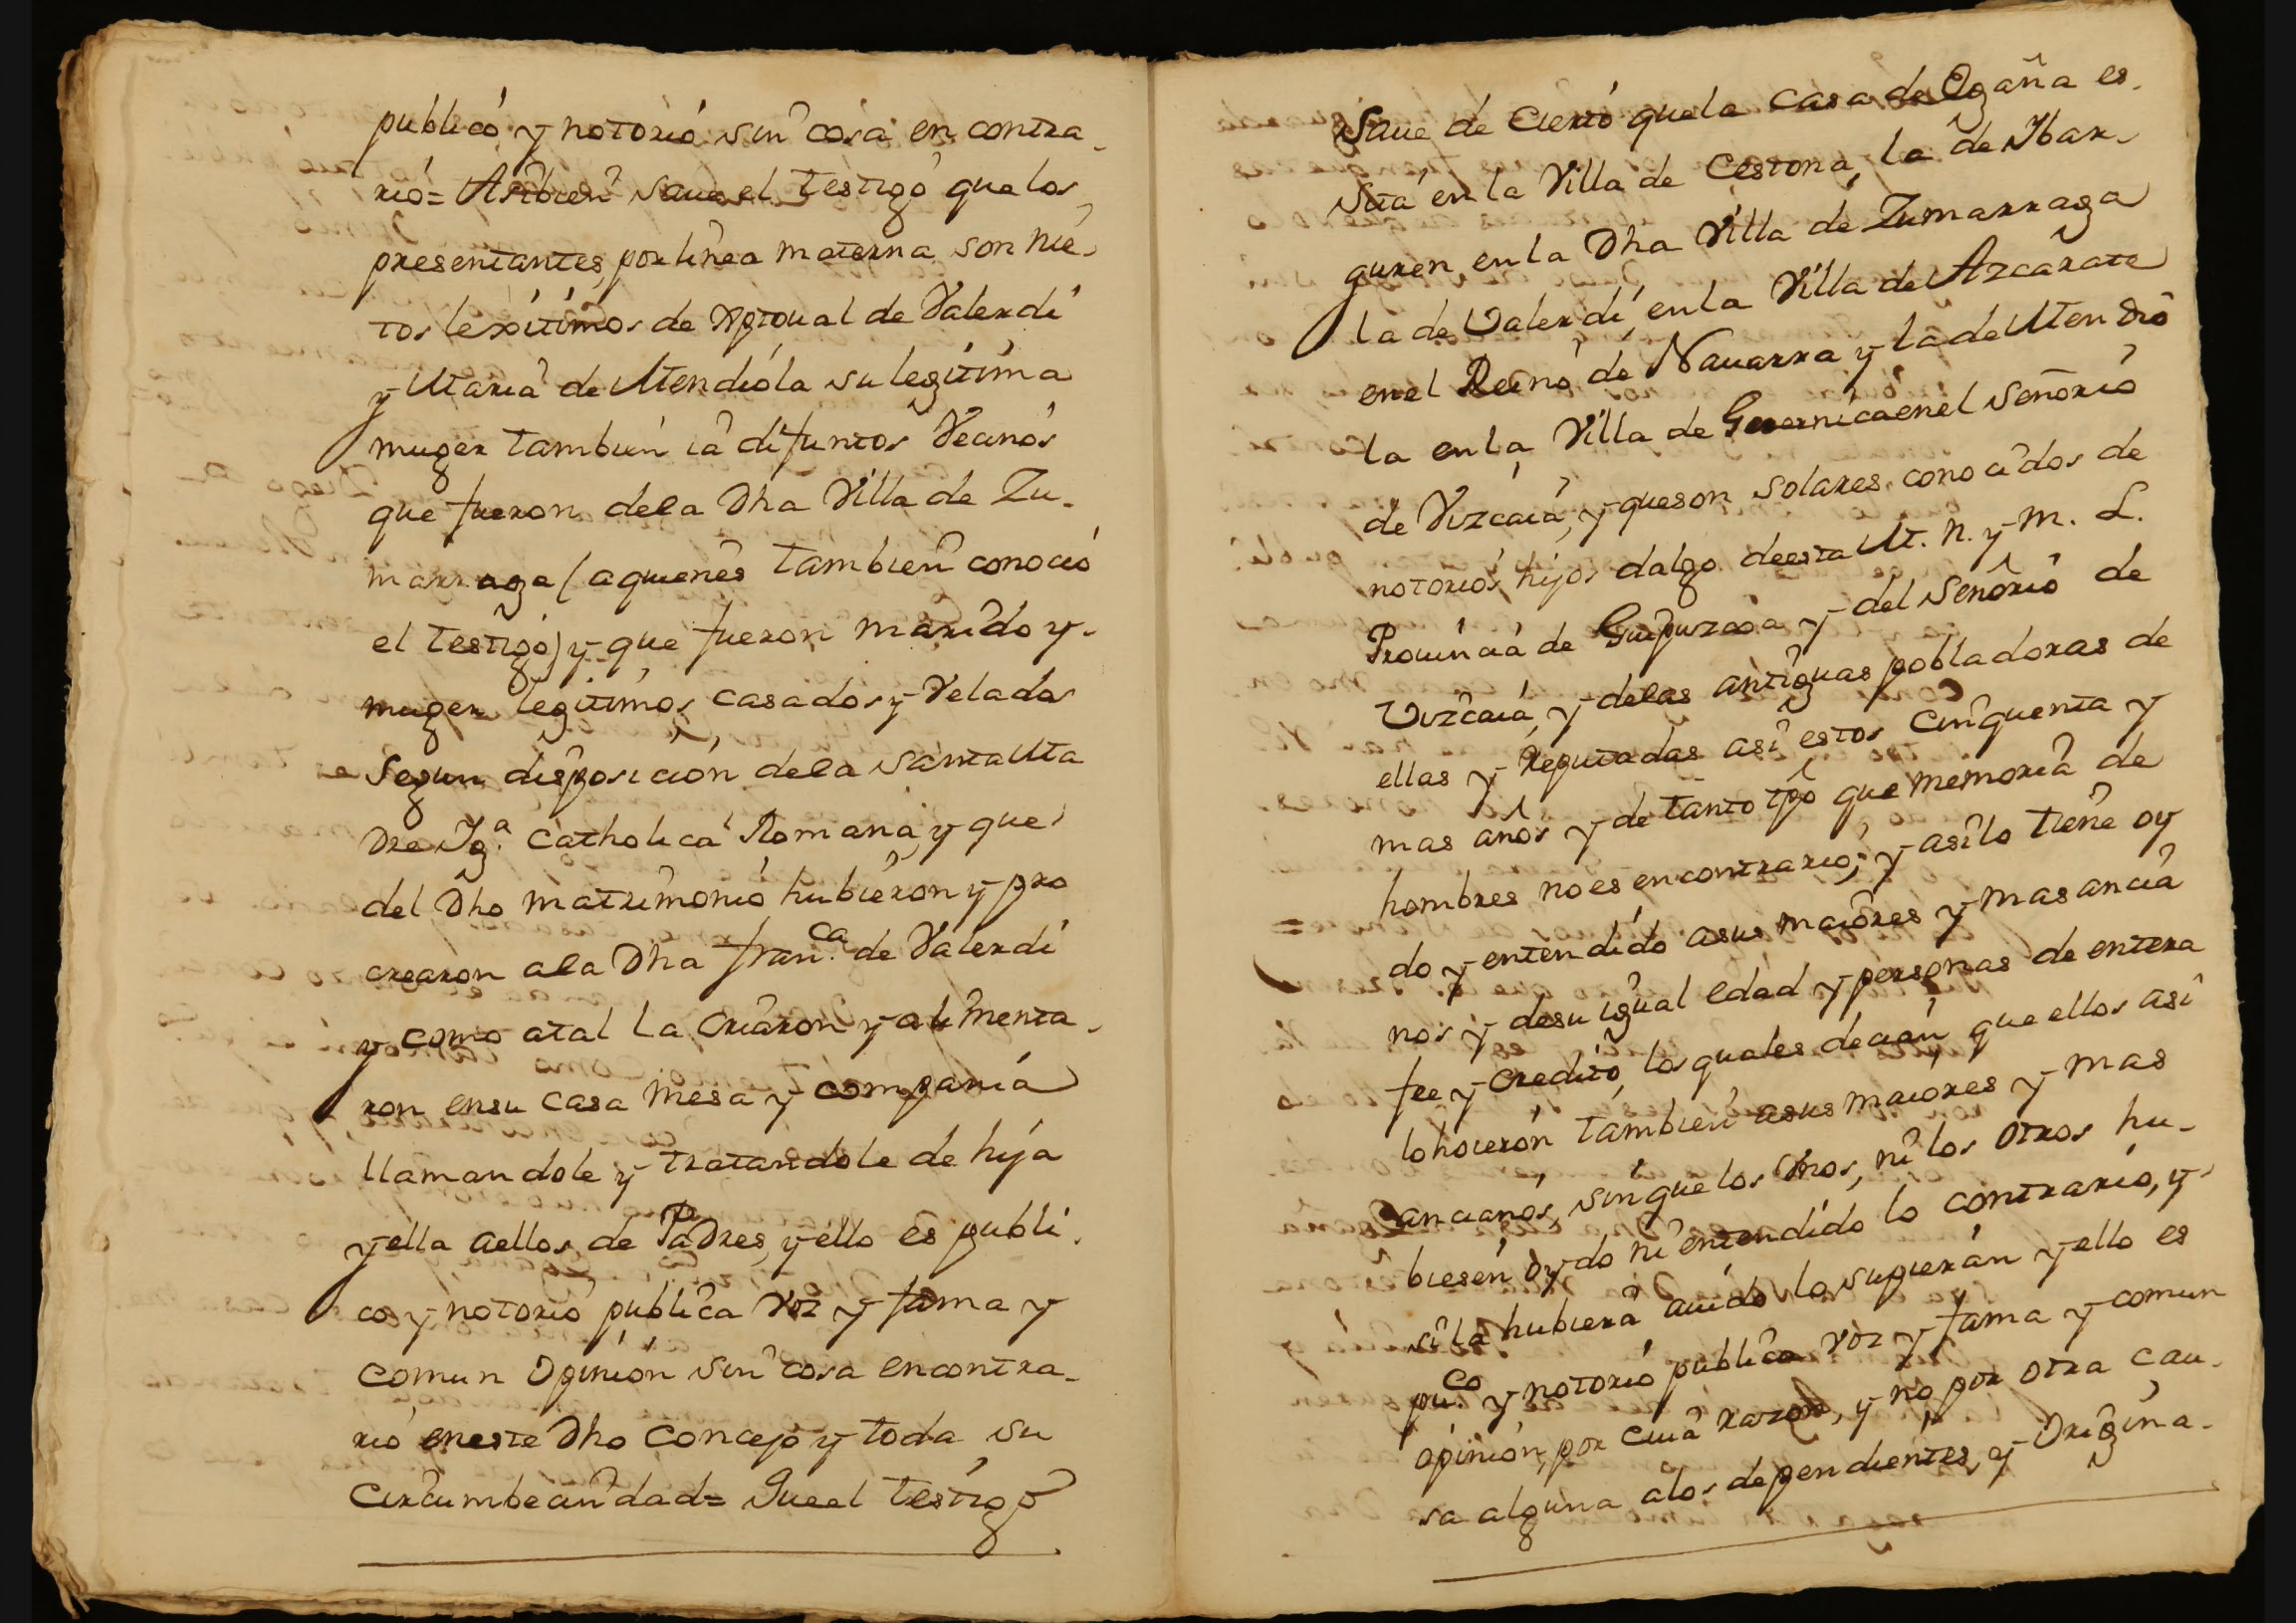 publicó y notorió sin cosa en contra-
rió= Asibien saue el testigo que los
presentantes por linea materna son nie-
tos lexitimos de Xptoual de Valerdi
y Maria de Mendiola su legitima
muger tambien ia difuntos Vecinos
que fueron dela Dha Villa de Zu-
marraga (aquienes tambien conoció
el testigo) y que fueron marido y
muger legitimos casados y Velados
Segun disposicion dela Santa Ma
Dre Jg.ª Catholica Romana, y que
del Dho matrimonio hubieron y pro
crearon ala Dha Fran.ca de Valerdi
y como atal la Criaron y alimenta-
ron ensu casa mesa y compania
llamandole y tratandole de hija
y ella aellos de Padres, y ello es publi-
co y notorio publica voz y fama y
comun opinion sin cosa encontra-
rio eneste Dho Concejo y toda su
Circumbecindad= Que el testigo
Saue de Cierto quela casa de Egaña es-
sita en la Villa de Cestona, la de Ybar-
guren, en la Dha Villa de Zumarraga
la de Valerdi, en la Villa de Azcarate
en el Reino de Nauarra y la de Mendio
la en la Villa de Guernica en el Señorio
de Vizcaia, y que son solares conocidos de
notorios hijos dalgo de esta M. N. y M. L.
Prouincia de Guipuzcoa y del Señorio de
Vizcaia, y delas antiguas pobladoras de
ellas y Reputadas asi estos cinquenta y
mas años y de tanto tpô que memoria de
hombres no es en contrario; y asilo tiene oy
= do y entendido asus maiores y mas ancia
nos y desu igual edad y personas de entera
fee y Credito, los quales decian, que ellos asi
lo hoieron tambien asus maiores y mas
ancianos, sin que los Vnos, ni los otros hu-
biesen oydo ni entendido lo contrario, y
si la hubiera auido lo supieran y ello es
pu.co y notorio publica voz y fama y comun
opinion, por cuia razon, y no por otra cau-
sa alguna alos dependientes, y Origina-